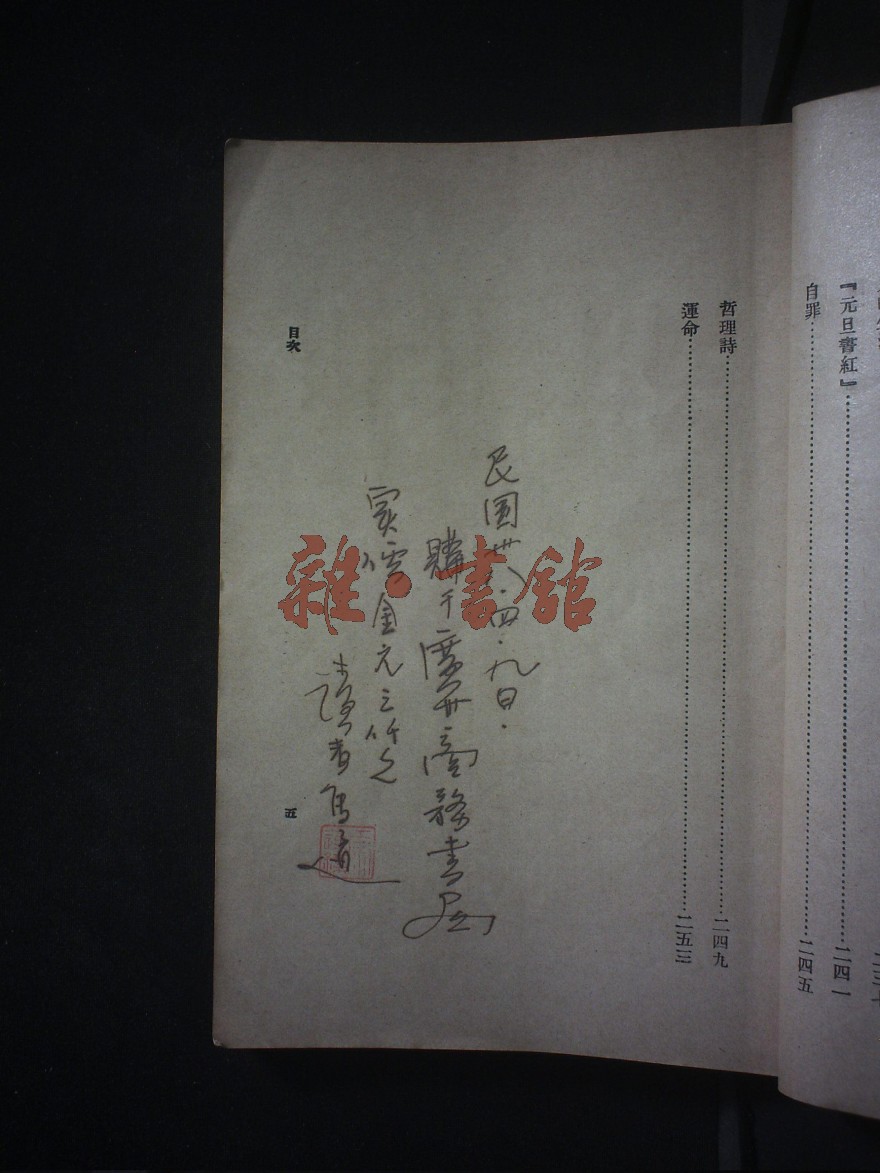 『元旦書紅』……二四一
自罪……二四五
哲理詩……二四九
運命……二五三
民國卅八.四.九日.
購于廣州商務書局
實價金元
讀者
目次
五
雜·書館